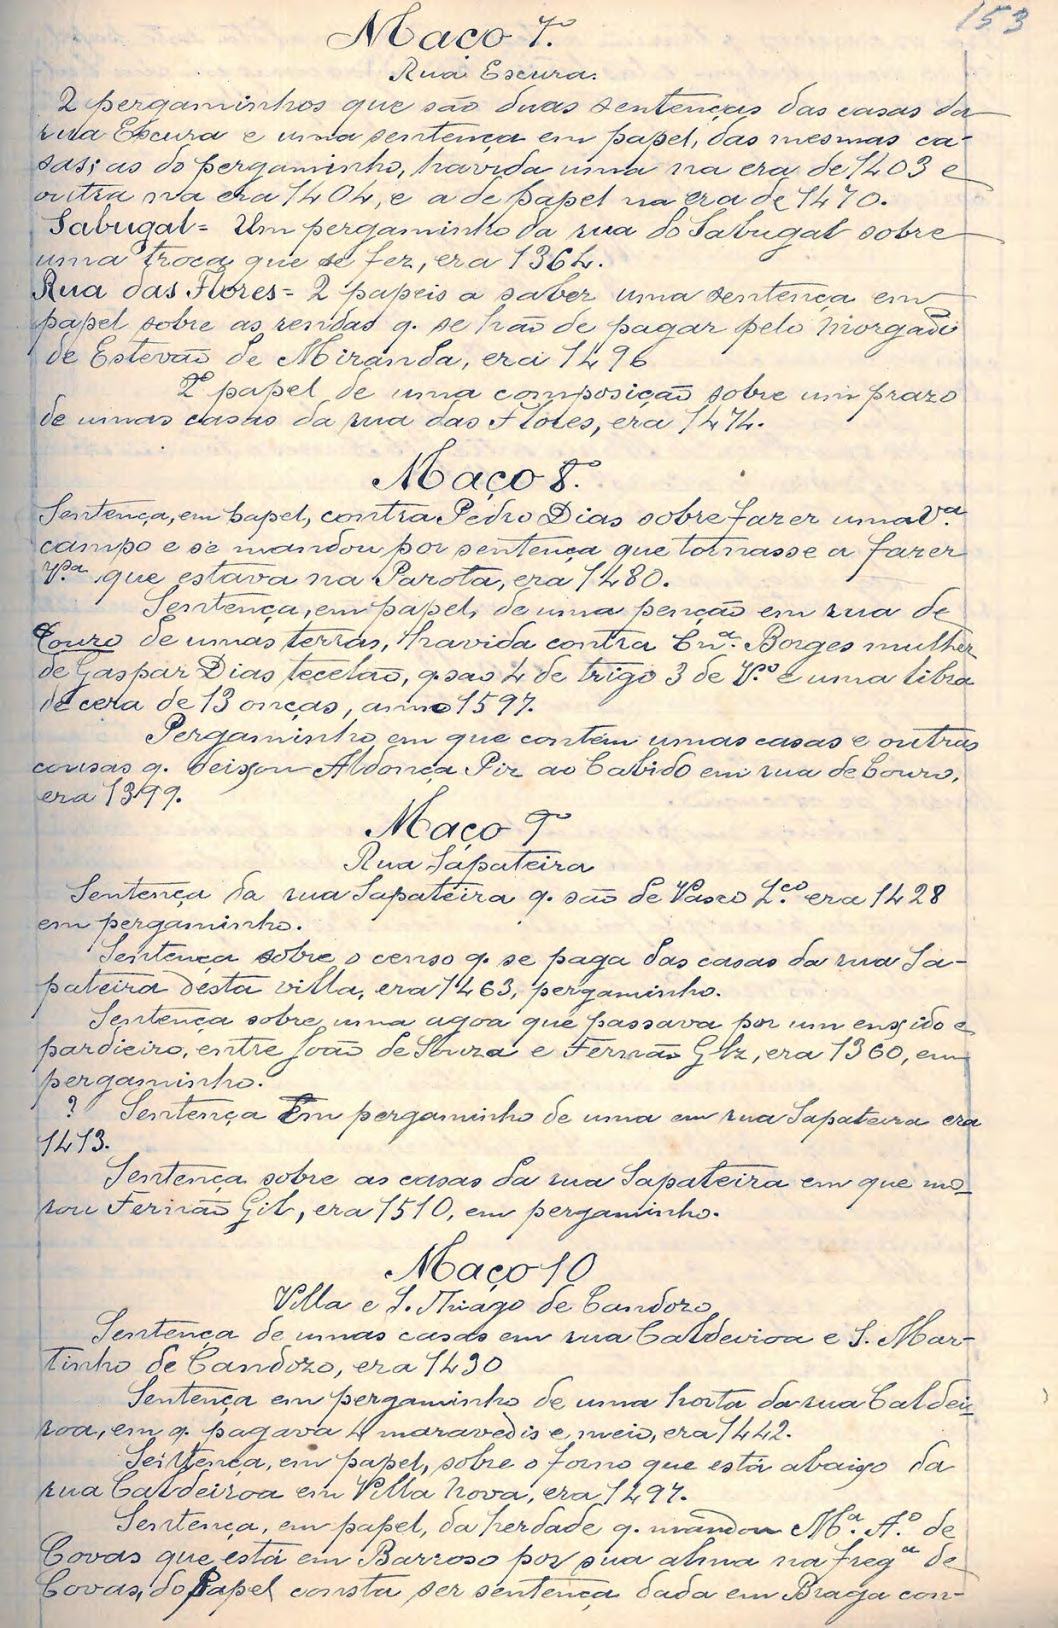 153
Maço 7º
Rua Escura.
2 pergaminhos que são duas sentenças das casas da
rua Escura e uma sentença em papel, das mesmas ca-
sas; as do pergaminho, havida uma na era de 1403 e
outra na era 1404, e a de papel na era de 1470.
Sabugal = Um pergaminho da rua do Sabugal sobre
uma troca que se fez, era 1364.
Rua das Flores = 2 papeis a saber uma sentença em
papel sobre as rendas q. se hão de pagar pelo Morgado
de Estevão de Miranda, era 1496
2º papel de uma composição sobre um prazo
de umas casas da rua das Flores, era 1474.
Maço 8º
Sentença, em papel, contra Pedro Dias sobre fazer uma Vª.
campo e se mandou por sentença que tornasse a fazer
Vª. que estava na Parota, era 1480.
Sentença, em papel, de uma penção em rua de
Couro de umas terras, havida contra Cnª. Borges mulher
de Gaspar Dias tecelão, q. são 4 de trigo 3 de Vº. e uma libra
de cera de 13 onças, anno 1597.
Pergaminho em que contém umas casas e outras
cousas q. deixou Aldonça Piz ao Cabido em rua de Couro,
era 1399.
Maço 9º
Rua Sapateira
Sentença da rua Sapateira q. são de Vasco Lço. era 1428
em pergaminho.
Sentença sobre o censo q. se paga das casas da rua Sa-
pateira desta villa, era 1463, pergaminho.
Sentença sobre uma agoa que passava por um enxido e
pardieiro, entre João de Souza e Fernão Glz, era 1360, em
pergaminho.
? Sentença Em pergaminho de uma em rua Sapateira era
1413.
Sentença sobre as casas da rua Sapateira em que mo-
rou Fernão Gil, era 1510, em pergaminho.
Maço 10
Villa e S. Thiago de Candozo
Sentença de umas casas em rua Caldeiroa e S. Mar-
tinho de Candozo, era 1430
Sentença em pergaminho de uma horta da rua Caldei-
roa, em q. pagava 4 maravedis e meio, era 1442.
Sentença, em papel, sobre o forno que está abaixo da
rua Caldeiroa em Villa Nova, era 1497.
Sentença, em papel, da herdade q. mandou Mª. Aº. de
Covas que está em Barroso por sua alma na fregª de
Covas, do Papel consta ser sentença dada em Braga con-